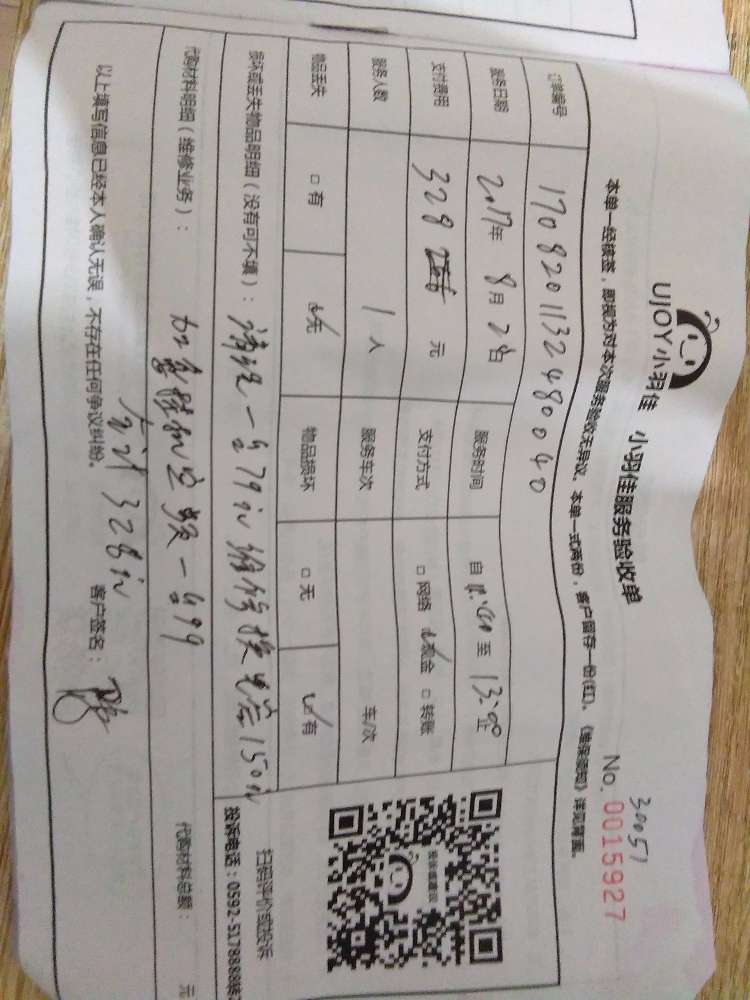 UJOY小羽佳 小羽佳服务验收单
30051
No. 0015927
本单一经核签，即视为对本次服务验收无异议。本单一式两份，客户留存一份(红)。《维保须知》详见背面。
订单编号 1708201132480040
服务日期 2017年 8月 2 日 服务时间 自 至 13:00 止
支付费用 328 元 支付方式 □网络 ☑现金 □转账
服务人数 1 人 服务车次 车/次
物品丢失 □有 ☑无 物品损坏 □无 ☑有
损坏或丢失物品明细（没有可不填）： 清洗一台79元 维修换电容150元
代购材料明细（维修业务）： 一台99
代购材料总额： 元
以上填写信息已经本人确认无误，不存在任何争议纠纷。 客户签名：
合计328元
扫码评价或投诉
投诉电话：0592-5178888转